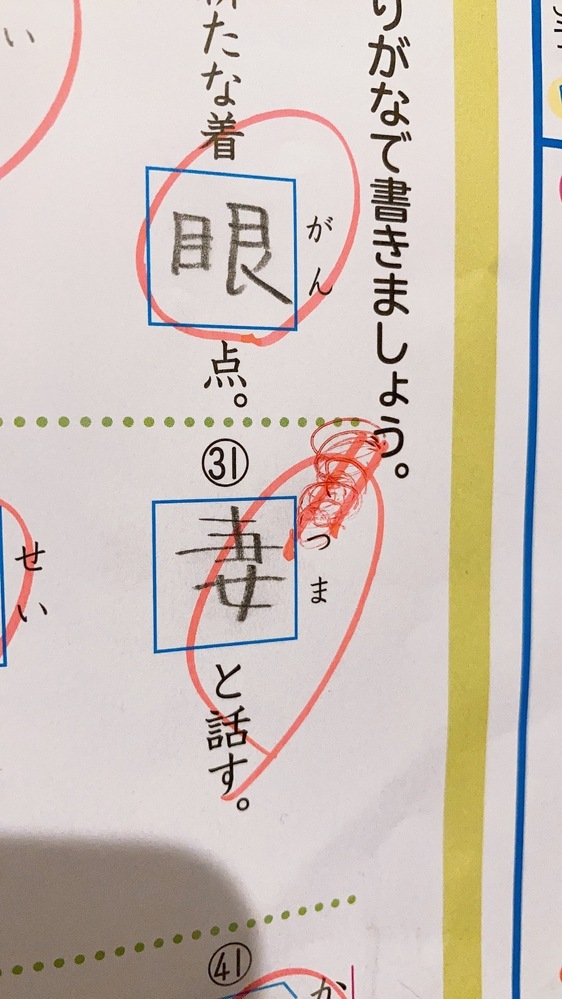 りがなで書きましょう。
たな着眼点。
がん
㉛
妻と話す。
つま
せい
い
㊶
か